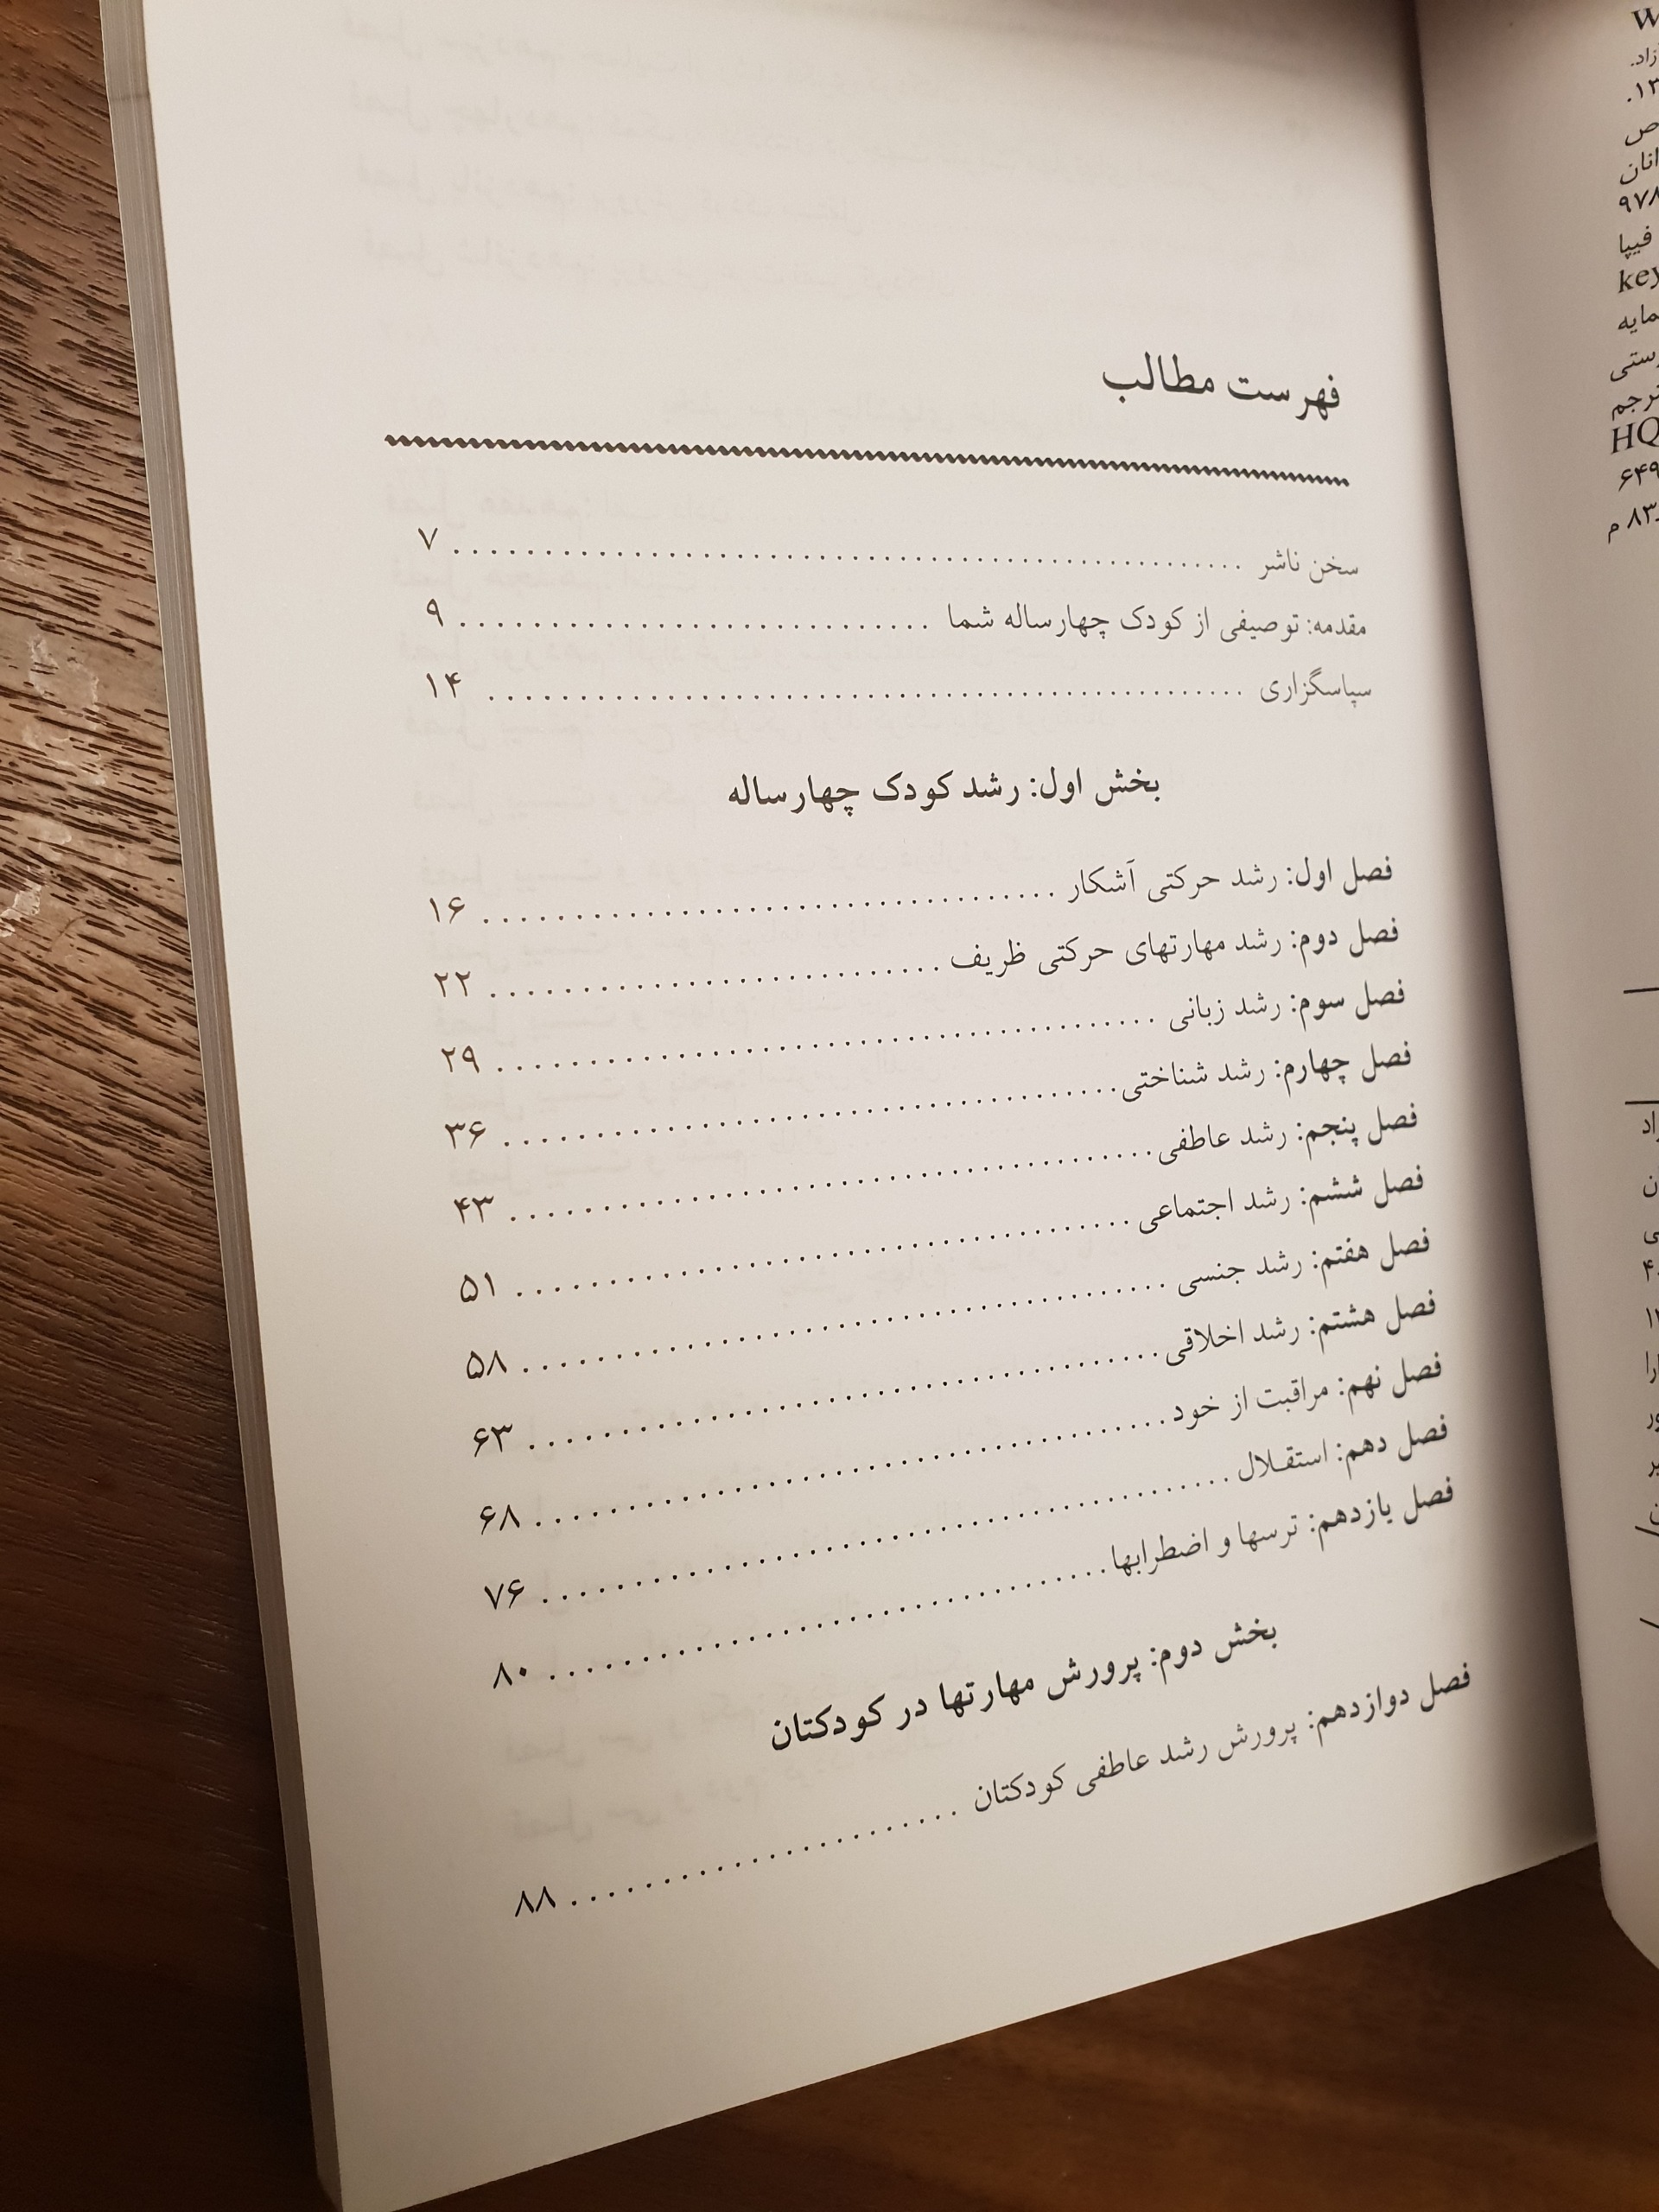 فهرست مطالب
سخن ناشر ........ ۷
مقدمه: توصیفی از کودک چهارساله شما ........ ۹
سپاسگزاری ........ ۱۴
بخش اول: رشد کودک چهارساله
فصل اول: رشد حرکتی آشکار ........ ۱۶
فصل دوم: رشد مهارتهای حرکتی ظریف ........ ۲۲
فصل سوم: رشد زبانی ........ ۲۹
فصل چهارم: رشد شناختی ........ ۳۶
فصل پنجم: رشد عاطفی ........ ۴۳
فصل ششم: رشد اجتماعی ........ ۵۱
فصل هفتم: رشد جنسی ........ ۵۸
فصل هشتم: رشد اخلاقی ........ ۶۳
فصل نهم: مراقبت از خود ........ ۶۸
فصل دهم: استقلال ........ ۷۶
فصل یازدهم: ترسها و اضطرابها ........ ۸۰
بخش دوم: پرورش مهارتها در کودکتان
فصل دوازدهم: پرورش رشد عاطفی کودکتان ........ ۸۸
ص
فیپا
key
HQ
۶۴۹
م ۸۳